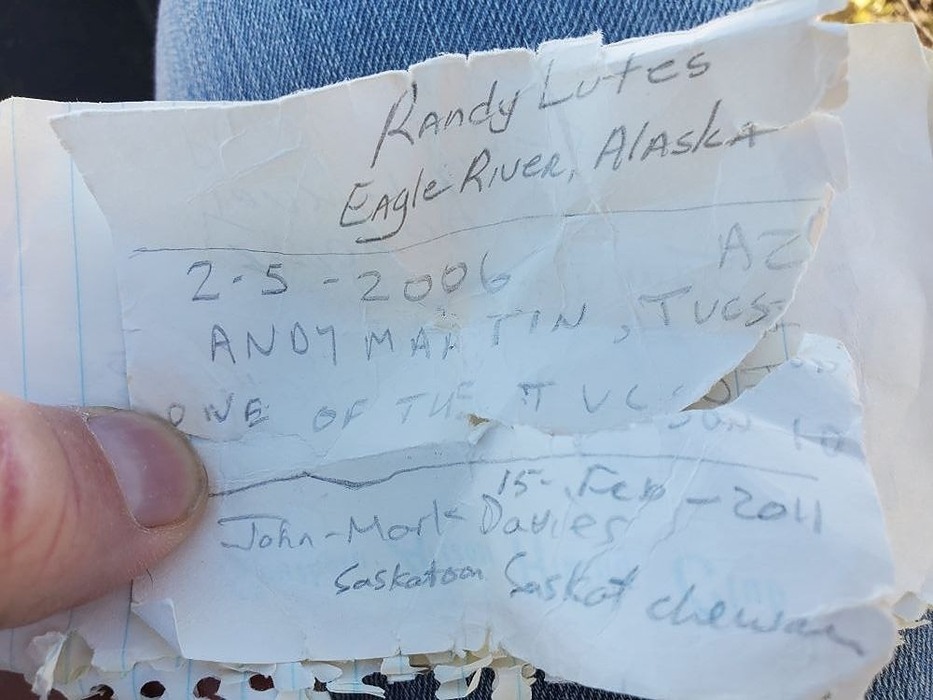 Randy Lutes
Eagle River, Alaska
2-5-2006 AZ
ANDY MARTIN, TUCS
ONE OF THE TUCSON
15-Feb-2011
John-Mark Davies
Saskatoon Saskatchewan